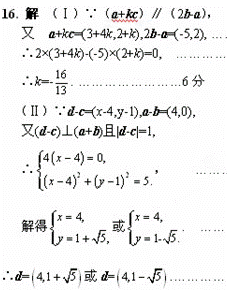 16. 解 (Ⅰ)∵ (a+kc)∥ (2b-a),
又 a+kc=(3+4k,2+k),2b-a=(-5,2), …
∴2×(3+4k)-(-5)×(2+k)=0, …………
∴k=-16/13. ……………………6 分
(Ⅱ)∵d-c=(x-4,y-1),a-b=(4,0),
又(d-c)⊥(a+b)且|d-c|=1,
∴{4(x-4)=0, (x-4)²+(y-1)²=5. , ………
解得{x=4, y=1+√5, 或{x=4, y=1-√5. . ……
∴d=(4,1+√5)或 d=(4,1-√5)…………